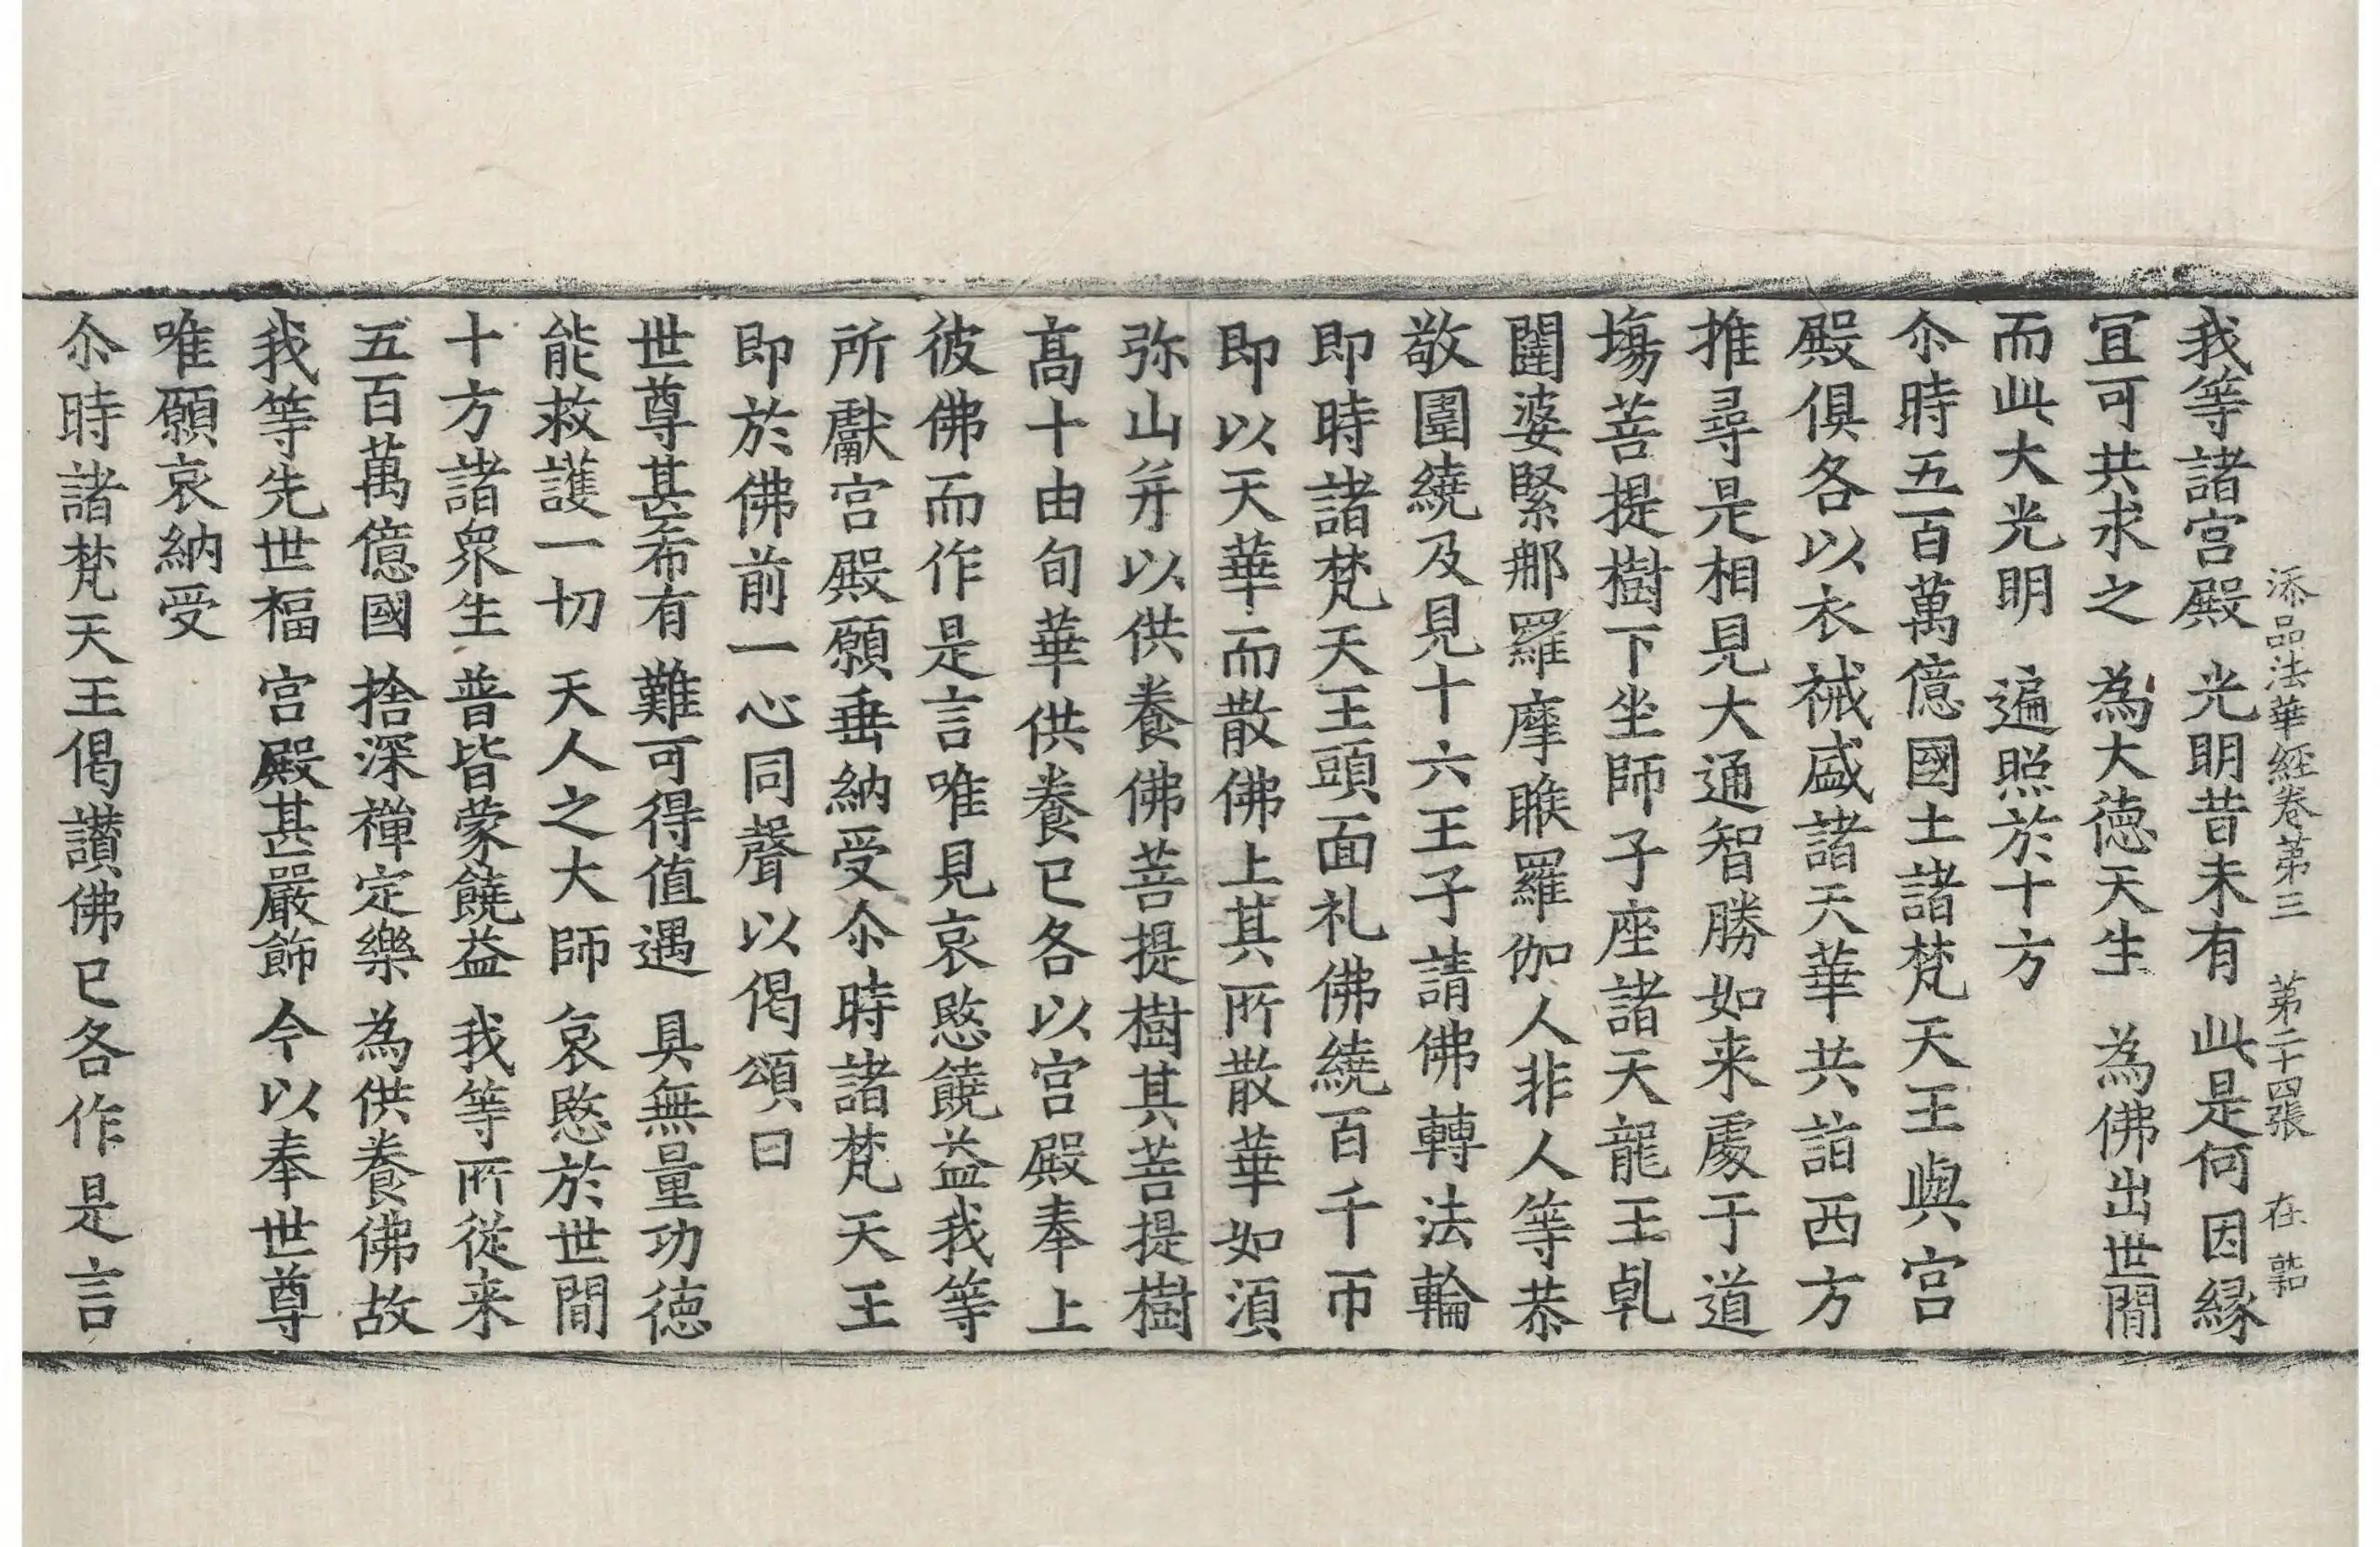 添品法華經卷第三 第二十四張 在
我等諸宮殿 光明昔未有 此是何因緣
冝可共求之 為大德天生 為佛出世閒
而此大光明 遍照於十方
尒時五百萬億國土諸梵天王與宮
殿俱各以衣祴盛諸天華共詣西方
推尋是相見大通智勝如来處于道
塲菩提樹下坐師子座諸天龍王乹
闥婆緊那羅摩睺羅伽人非人等恭
敬圍繞及見十六王子請佛轉法輪
即時諸梵天王頭面礼佛繞百千帀
即以天華而散佛上其所散華如湏
弥山并以供養佛菩提樹其菩提樹
髙十由旬華供養已各以宮殿奉上
彼佛而作是言唯見哀愍饒益我等
所獻宮殿願垂納受尒時諸梵天王
即於佛前一心同聲以偈頌曰
世尊甚希有 難可得值遇 具無量功德
能救護一切 天人之大師 哀愍於世閒
十方諸眾生 普皆蒙饒益 我等所從来
五百萬億國 捨深禪定樂 為供養佛故
我等先世福 宮殿甚嚴飾 今以奉世尊
唯願哀納受
尒時諸梵天王偈讃佛已各作是言